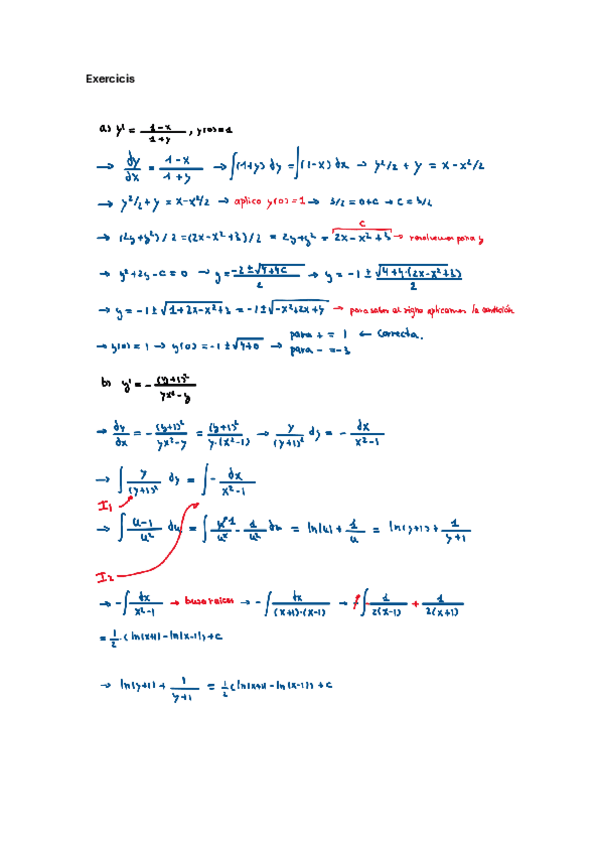 Exercicis
a) y' = (1-x)/(1+y), y(0)=1
→ dy/dx = (1-x)/(1+y) → ∫(1+y) dy = ∫(1-x) dx → y²/2 + y = x - x²/2
→ y²/2 + y = x - x²/2 → aplico y(0)=1 → 3/2 = 0+C → C = 3/2
→ (2y+y²)/2 = (2x-x²+3)/2 = 2y+y² = 2x-x²+3 → resolvemos para y
C
→ y²+2y-C=0 → y = (-2±√(4+4C))/2 → y = -1 ± √(4+4·(2x-x²+3))/2
→ y = -1±√(1+2x-x²+3) = -1±√(-x²+2x+4) → para saber el signo aplicamos la condición
→ y(0)=1 → y(0) = -1±√(4+0) → para + = 1 ← correcta.
para - = -3
b) y' = - (y+1)²/(yx²-y)
→ dy/dx = - (y+1)²/(yx²-y) = (y+1)²/(y·(x²-1)) → y/(y+1)² dy = - dx/(x²-1)
→ ∫ y/(y+1)² dy = ∫ - dx/(x²-1)
I₁
→ ∫ (u-1)/u² du = ∫ u/u² - 1/u² du = ln|u| + 1/u = ln|y+1| + 1/(y+1)
I₂
→ -∫ dx/(x²-1) → busco raíces → -∫ dx/((x+1)·(x-1)) → ∫ 1/(2(x-1)) + 1/(2(x+1))
= 1/2 · (ln|x+1| - ln|x-1|) + C
→ ln|y+1| + 1/(y+1) = 1/2 (ln|x+1| - ln|x-1|) + C